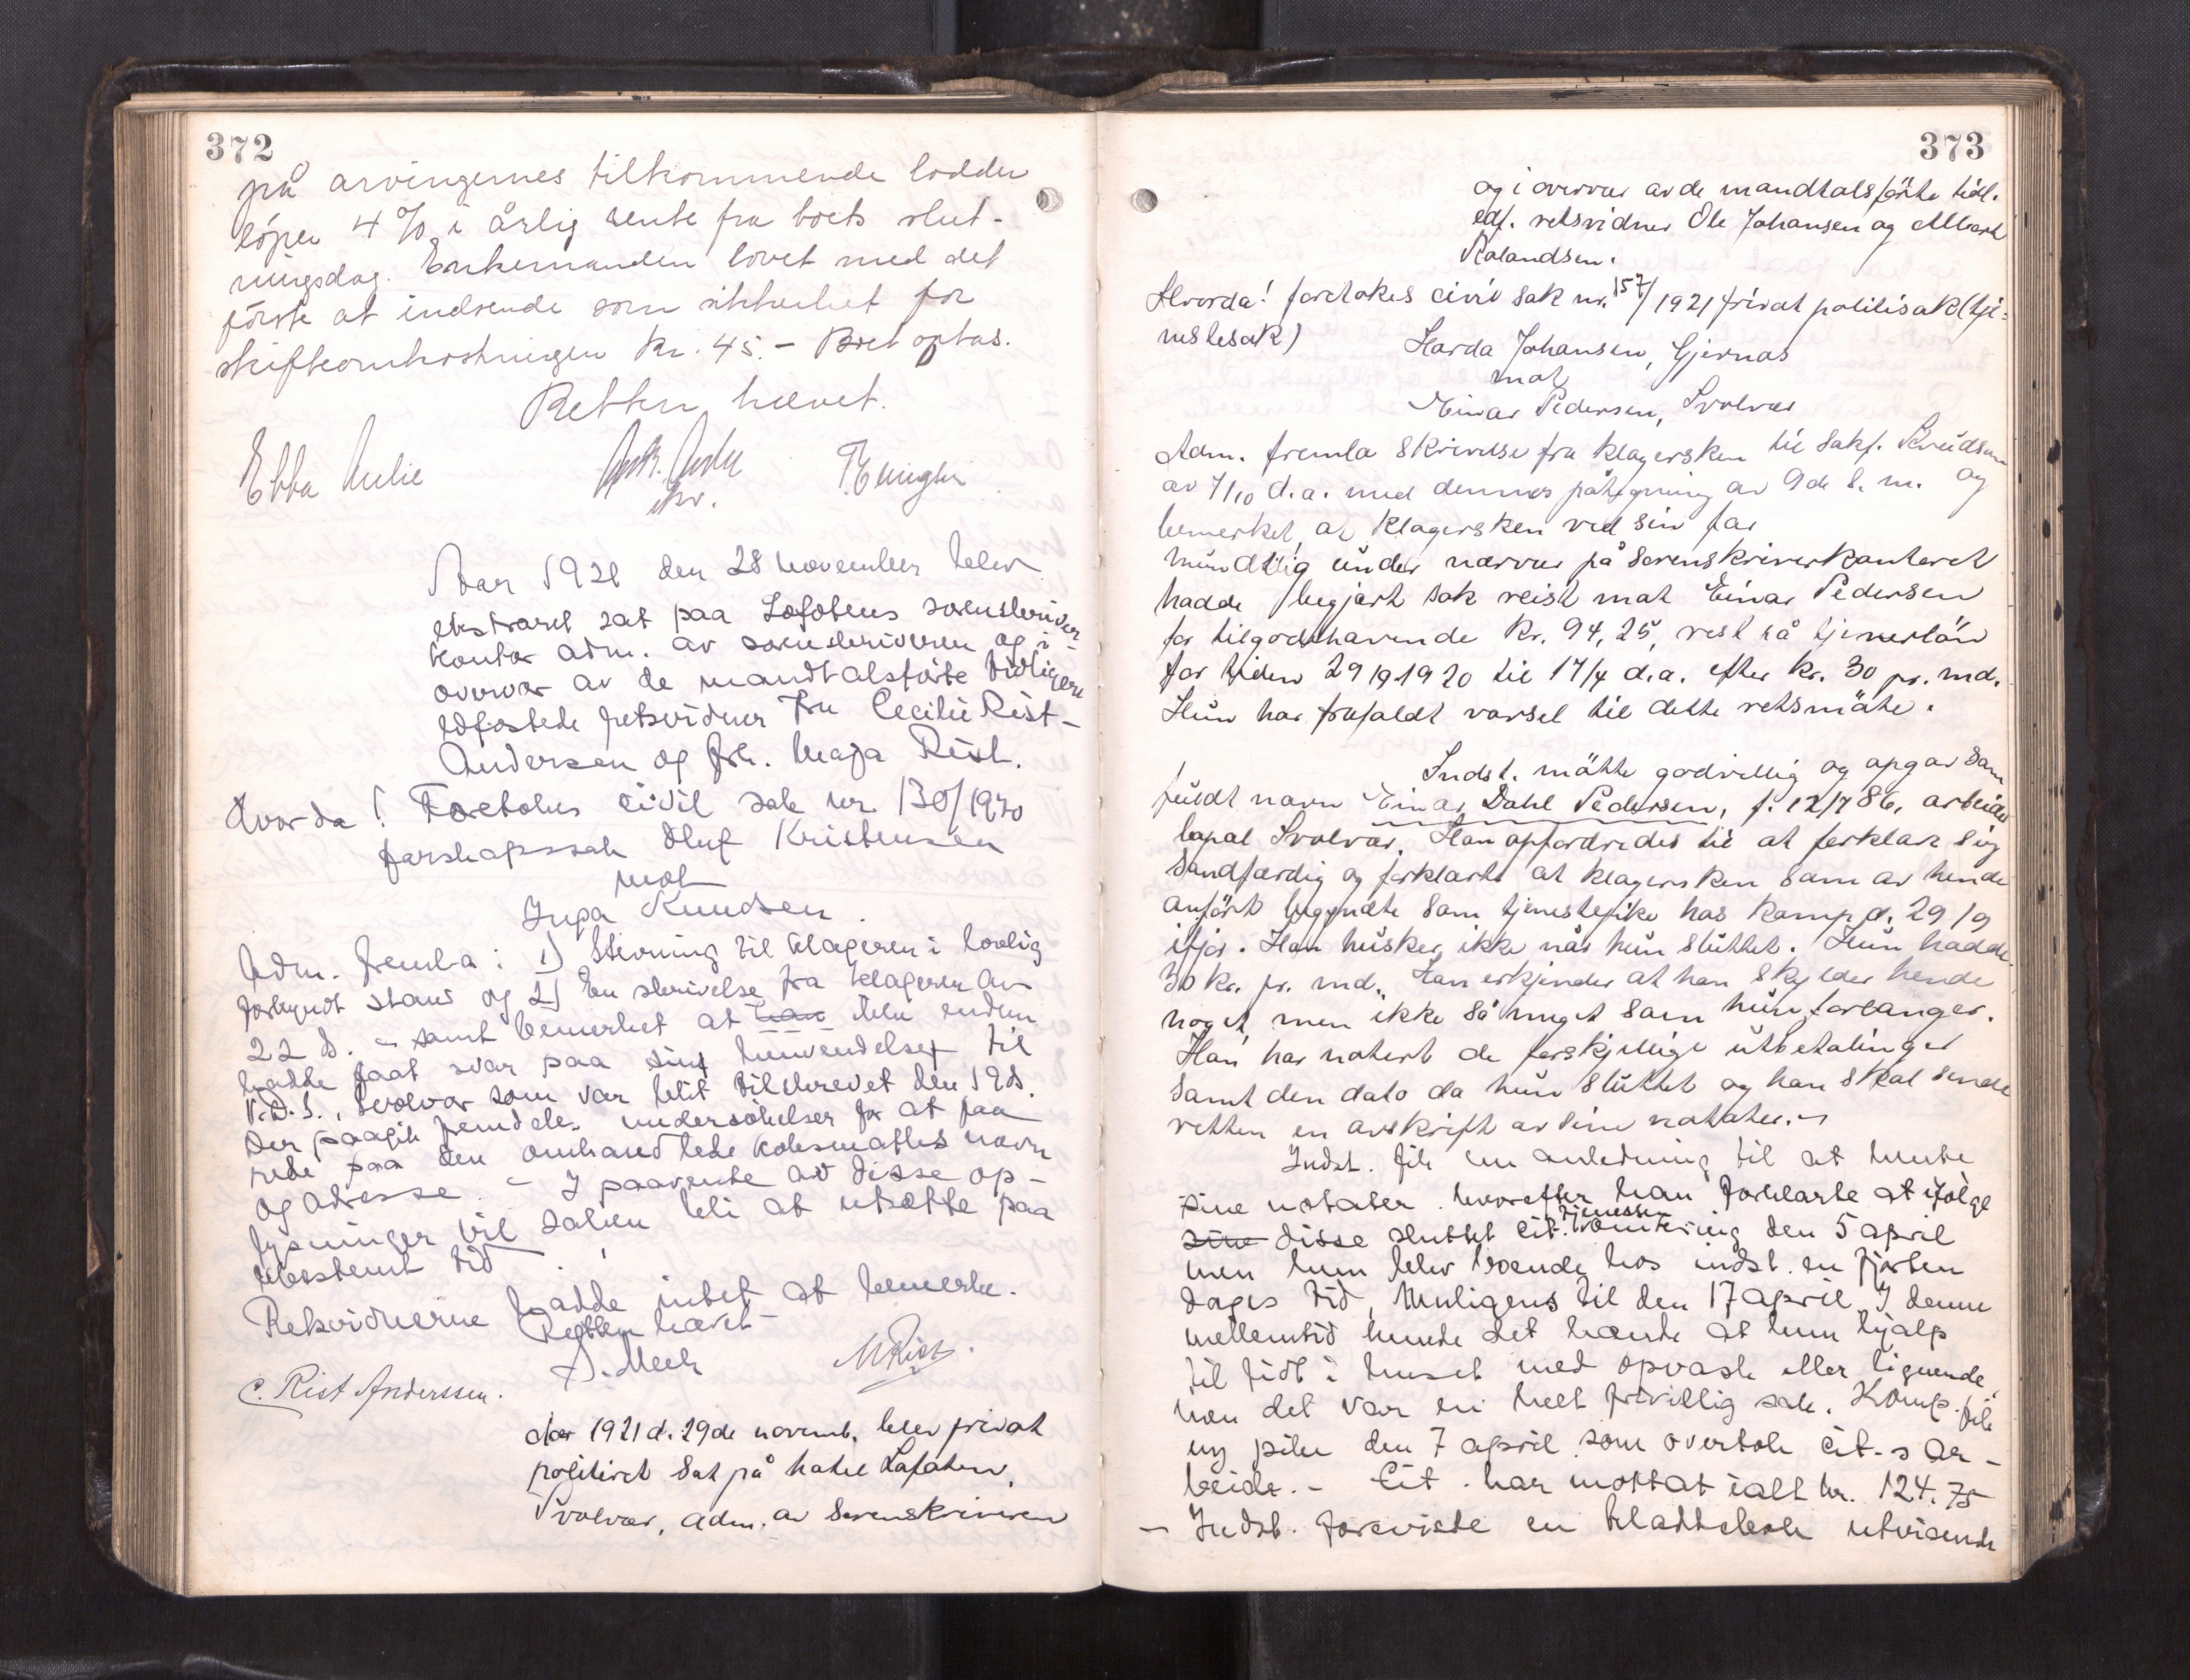 372
på arvingernes tilkommende lodder
löper 4 % i årlig rente fra boets slut-
ningsdag. Enkemanden lovet med det
første at indsende som sikkerhet for
skifteomkostningen kr. 45.- Boet optas.
Retten hævet.
Ebba
Aar 1921 den 28 november blev
ekstraret sat paa Lofotens sorenskriver
kontor adm. av sorenskriveren og i
overvær av de mandtalsførte tidligere
edfæstede retsvidner Fru Cecilie Rist-
Andersen og frk. Maja Rist.
Hvorda! Foretokes civil sak nr. 130/1920
farskapssak Oluf Kristensen
mot
Inga Knudsen.
Adm. fremla: 1) Stevning til klageren i lovlig
forkyndt stand og 2) En skrivelse fra klageren av
22 ds. - samt bemerket at han ikke endnu
hadde faat svar paa sin henvendelse til
V.D.S., Svolvær som var blit tilskrevet den 19 ds.
Der paagik fremdeles undersökelser for at faa
rede paa den omhandlede koksmattes navn
og adresse. - I paavente av disse op-
lysninger vil saken bli at utsætte paa
ubestemt tid.
Retsvidnerne hadde intet at bemerke.
Retten hævet-
C. Rist Anderssen. MRist.
Aar 1921 d. 29de novemb. blev privat
politiret sat på hotel Lofoten,
Svolvær, adm. av sorenskriveren
373
og i overvær av de mandtalsförte tidl.
edf. retsvidner Ole Johansen og Albert
Rolandsen.
Hvorda! foretokes civil sak nr. 157/1921 privat politisak (tje-
nestesak)
Harda Johansen, Gjernas
mot
Einar Pedersen, Svolvær
Adm. fremla skrivelse fra klagersken til sakf. Knudsen
av 7/10 d.a. med dennes påtegning av 9de s.m. og
bemerket, at klagersken ved sin far
mundtlig under nærvær på sorenskriverkontoret
hadde begjært sak reist mot Einar Pedersen
for tilgodehavende kr. 94,25, rest på tjenerlön
for tiden 29/9 1920 til 17/4 d.a. efter kr. 30 pr. md.
Hun har frafaldt varsel til dette retsmöte.
Indst. mötte godvillig og opgav som
fuldt navn Einar Dahl Pedersen, f. 12/7 86, arbeider
bopæl Svolvær. Han opfordredes til at forklare sig
sandfærdig og forklarte at klagersken som av hende
anfört begyndte som tjenestepike hos komp. d. 29/9
ifjor. Han husker ikke når hun sluttet. Hun hadde
30 kr. pr. md. Han erkjender at han skylder hende
noget, men ikke så meget som hun forlanger.
Han har notert de forskjellige utbetalinger
samt den dato da hun sluttet og han skal sende
retten en avskrift av sine notater.
Indst. fik en anledning til at hente
sine notater hvorefter han forklarte at ifölge
sine disse sluttet cit. tjeneste den 5 april
men hun blev boende hos indst. en fjorten
dages tid, muligens til den 17 april. I denne
mellemtid hunde det hænde at hun hjalp
til litt i huset med opvask eller lignende,
men det var en helt frivillig sak. Komp. fik
ny pike den 7 april som overtok cit.s ar-
beide. - Cit. har mottat ialt kr. 124.75
- Indst. foreviste en kladdebok utvisende